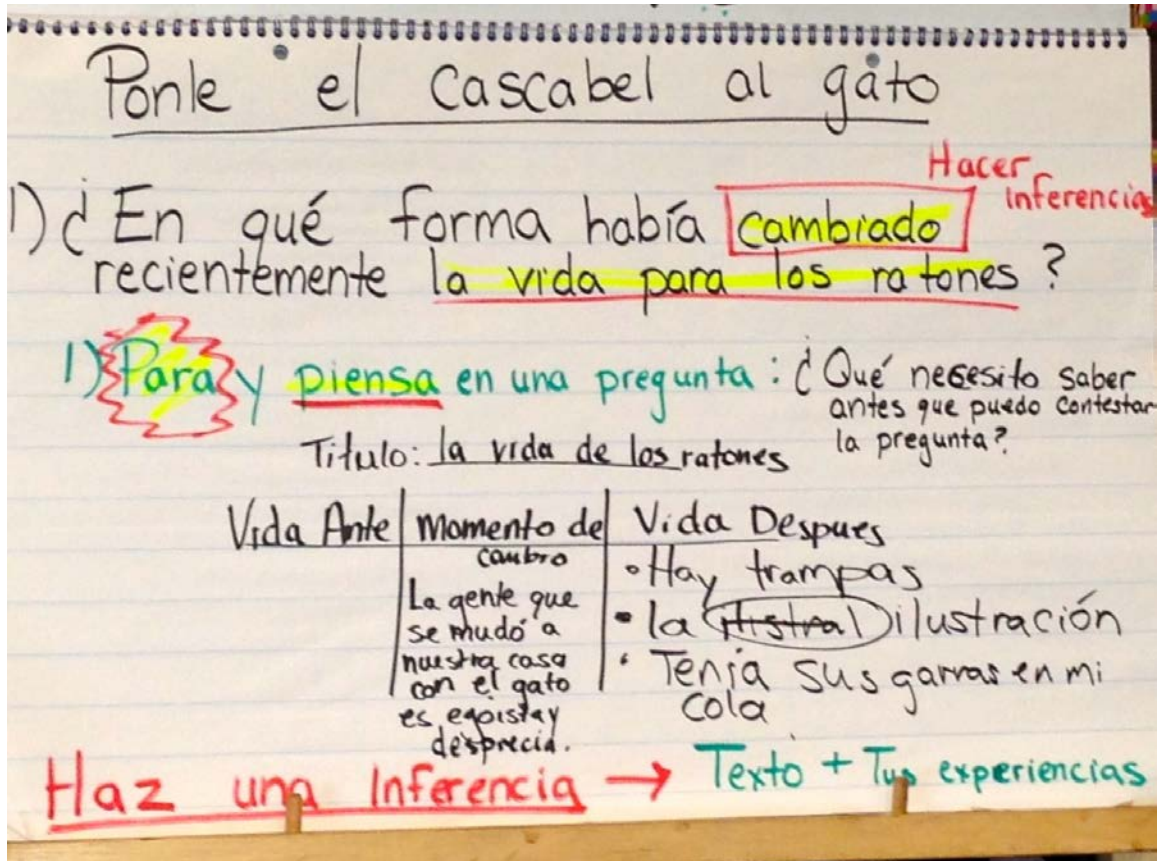 Ponle el cascabel al gato
Hacer inferencias
1) ¿En qué forma había cambiado
recientemente la vida para los ratones?
1) Para y piensa en una pregunta: ¿Qué necesito saber
antes que puedo contestar
la pregunta?
Titulo: la vida de los ratones
Vida Ante
Momento de
cambio
La gente que
se mudó a
nuestra casa
con el gato
es egoista y
desprecia.
Vida Despues
• Hay trampas
• la ilustración
• Tenia sus garras en mi
cola
Haz una Inferencia → Texto + Tus experiencias